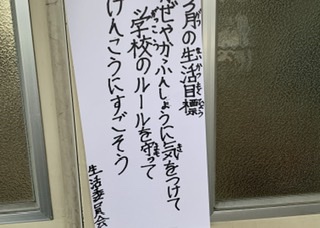 月の生活目標
かぜやかふんしょうに気をつけて
学校のルールを守って
けんこうにすごそう
生活委員会